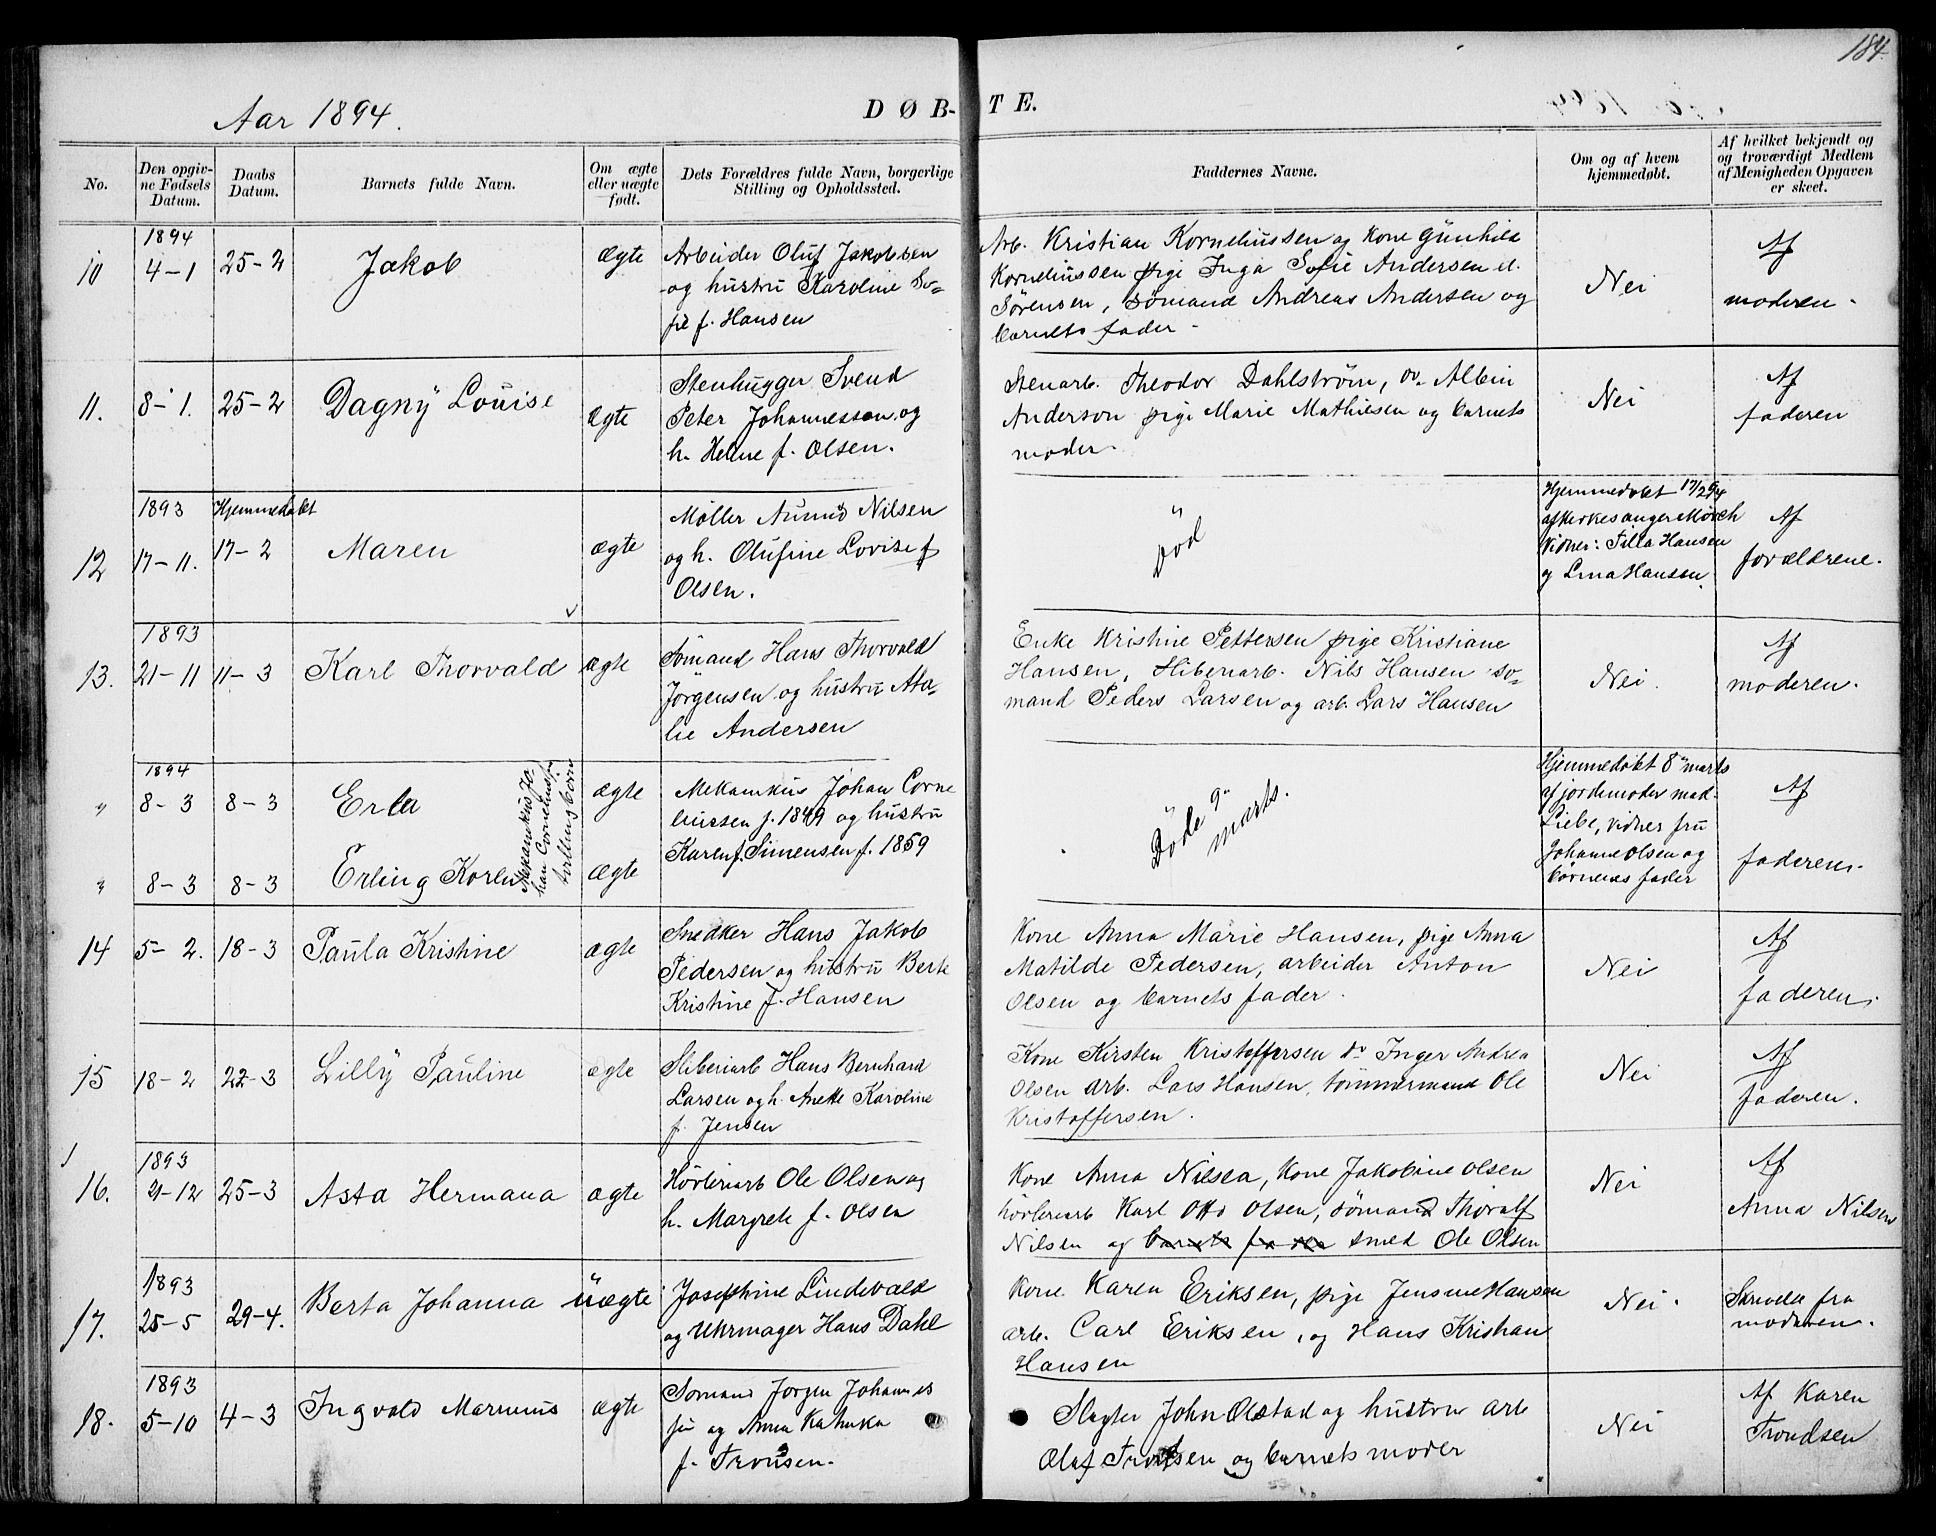 184.
Aar 1894.
DØB-TE.
No.
Den opgiv-
ne Fødsels
Datum.
Daabs
Datum.
Barnets fulde Navn.
Om ægte
eller uægte
født.
Dets Forældres fulde Navn, borgerlige
Stilling og Opholdssted.
Faddernes Navne.
Om og af hvem
hjemmedøbt.
Af hvilket bekjendt og
og troværdigt Medlem
af Menigheden Opgaven
er skeet.
10
1894
4-1
25-2
Jakob
Ægte
Arbeider Oluf Jakobsen
og hustru Karoline So-
fie f. Hansen
Arb. Kristian Korneliussen og Kone Gunhild
Korneliussen pige Inga Sofie Andersen d.
Sørensen, sømand Andreas Andersen og
barnets fader -
Nei
Af
moderen.
11.
8-1.
25-2
Dagny Louise
Ægte
Stenhugger Svend
Peter Johannesson og
h. Helene f. Olsen.
Stenarb. Theodor Dahlstrøm, do. Albin
Anderson pige Marie Mathiesen og barnets
moder.
Nei
Af
faderen
12
1893
17-11.
Hjemmedøbt
17-2
Maren
Ægte
Møller Amund Nilsen
og h. Olufine Lovise f
Olsen.
Død
Hjemmedøbt 17/2 94
af Kirkesanger Mørch
Vidner: Tilla Hansen
og Lina Hansen.
Af
forældrene.
13.
1893
21-11
11-3
Karl Thorvald
Ægte
Sømand Hans Thorvald
Jörgensen og hustru Ata-
lie Andersen
Enke Kristine Pettersen pige Kristiane
Hansen, Sliberiarb. Nils Hansen sø-
mand Peders Larsen og arb. Lars Hansen
Nei.
Af
moderen.
"
1894
8-3
8-3
Erla
Ægte
Mekanikus Johan Corne
liussen f. 1849 og hustru
Karen f. Simensen f. 1859
Døde 9"
marts.
Hjemmedøbt 8" marts
af jordemoder mad.
Liebe, vidner fru
Johanne Olsen og
børnenes fader
Af
faderen.
"
8-3
8-3
Erling Koren
Mekanikus Jo
han Corneliussen
tvillingbørn
Ægte
14
5-2.
18-3
Paula Kristine
Ægte
Snedker Hans Jakob
Pedersen og hustru Berte
Kristine f. Hansen
Kone Anna Marie Hansen, pige Anna
Matilde Pedersen, arbeider Anton
Olsen og barnets fader.
Nei
Af
faderen.
15
18-2
22-3
Lilly Pauline
Ægte
Sliberiarb Hans Bernhard
Larsen og h. Anette Karoline
f. Jensen
Kone Kirsten Kristoffersen do Inger Andrea
Olsen arb. Lars Hansen, tømmermand Ole
Kristoffersen.
Nei
Af
faderen.
16.
1893
21-12
25-3
Asta Hermana
Ægte
Høvleriarb Ole Olsen og
h. Margrete f. Olsen
Kone Anna Nilsen, Kone Jakobine Olsen
høvleriarb Karl Otto Olsen, sømand Thoralf
Nilsen og barnets faden smed Ole Olsen
Nei
Af
Anna Nilsen
17.
1893
25-5
29-4.
Berta Johanna
Uægte
Josephine Lindevald
og Uhrmager Hans Dahl
Kone Karen Eriksen, pige Jensine Hansen
arb. Carl Eriksen, og Hans Kristian
Hansen
Nei.
Skrivelse fra
moderen.
18.
1893
5-10
4-3
Ingvald Marinius
Ægte
Sømand Jørgen Johannes
og Anna Katinka
f. Tronsen.
Slagter John Olstad og hustru arb
Olaf Trondsen og barnets moder
Nei
Af Karen
Trondsen